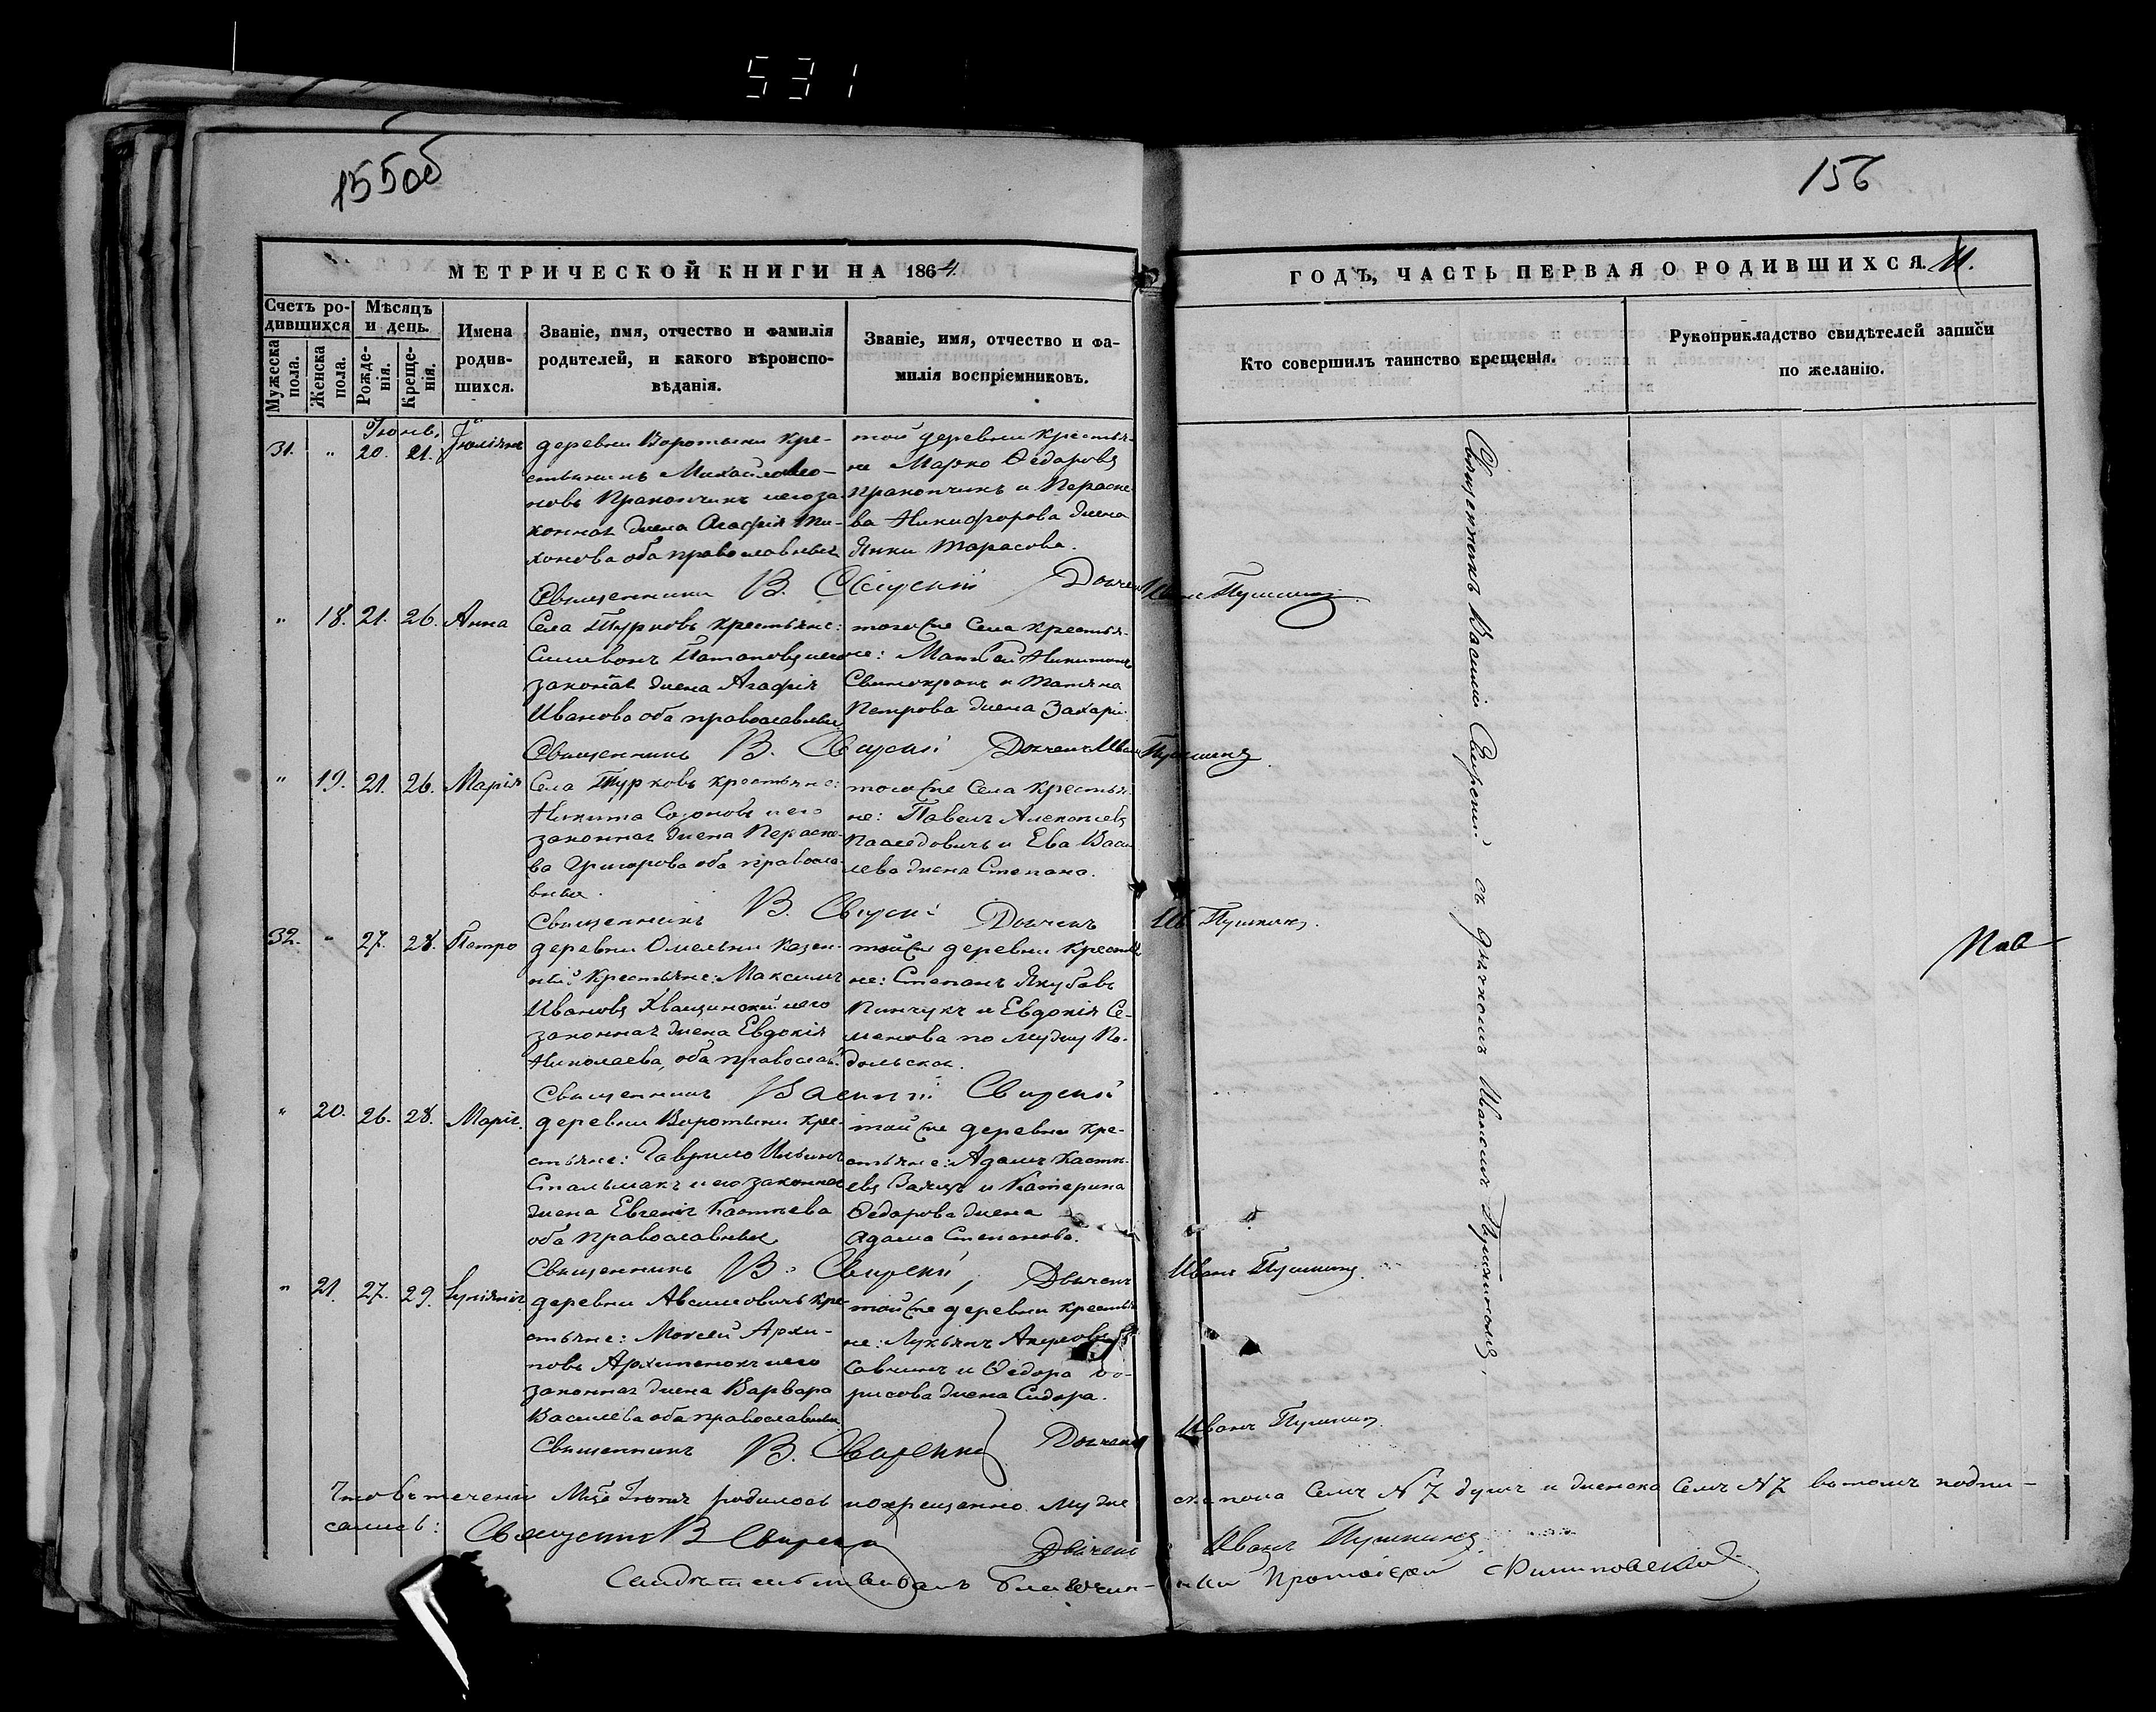 531
155об
156
МЕТРИЧЕСКОЙ КНИГИ НА 1864
ГОДЪ, ЧАСТЬ ПЕРВАЯ О РОДИВШИХСЯ.
Счетъ ро-
дившихся
Мужеска пола.
Женска пола.
Мѣсяцъ
и день.
Рожде-
нія.
Креще-
нія.
Имена
родив-
шихся.
Званіе, имя, отчество и фамилія
родителей, и какого вѣроиспо-
вѣданія.
Званіе, имя, отчество и фа-
милія воспріемниковъ.
Кто совершилъ таинство крещенія.
Рукоприкладство свидѣтелей записи
по желанію.
Іюнь
31. " 20. 21. Іюліянъ
деревни Воротыни кре-
стьянинъ Михаилъ
новъ Пракопчикъ и его за-
конная жена Агафія Ти-
хонова оба православныя
той деревни крестья-
не Марко Ѳедаровъ
Пракопчикъ и Параске-
ва Никифорова жена
Янки Тарасова.
Священникъ В. Свирскій Дьячекъ Иванъ Пушкинъ
" 18. 21. 26. Анна
Села Турковъ крестьяне:
Силивонъ Патаповъ и его
законая жена Агафія
Иванова оба православныя
тогоже Села крестья-
не: Матвей Никитинъ
и Татяна
Петрова жена Захарі.
Священникъ В. Свирскій Дьячекъ Иванъ Пушкинъ
" 19. 21. 26. Марія
Села Турковъ крестьяне:
Никита Созоновъ и его
законная жена Параске-
ва Григорова оба правосла-
вныя.
тогоже Села крестья-
не: Павелъ Алексіевъ
и Ева Васи
лева жена Степана.
Священникъ В. Свирскі Дьячекъ Ив. Пушкинъ.
32. " 27. 28. Петро
деревни Омельни казен-
ный крестьяне: Максимъ
Ивановъ Хващинскій и его
законная жена Евдокія
Николаева, оба православ.
тойже деревни крестья
не: Степанъ Якубовъ
Пинчукъ и Евдокія Се-
менова по мужу По-
дольская.
Священникъ Василій Свирскій
" 20. 26. 28. Марія.
деревни Воротыни кре-
стьяне: Гаврило Ильинъ
Стальмакъ и его законная
жена Евгенія Кастъева
оба православныя
тойже деревни кре-
стьяне: Адамъ Касть-
евъ и Катерина
Ѳедарова жена
Адама Степанова.
Священникъ В. Свирскій, Дьячекъ Иванъ Пушкинъ.
" 21. 27. 29.
деревни Авсимовичъ кре-
стьяне: Моисей Архи-
повъ Архипенокъ и его
законная жена Варвара
Василева оба православныя
тойже деревни крестья
не: Лукьянъ
Савчинъ и Ѳедора Бо-
рисова жена Сидора.
Священникъ В. Свирскій Дьячекъ Иванъ Пушкинъ.
Священникъ Василій Свирскій съ дьячкомъ Иваномъ Пушкинымъ.
Что въ теченіи Мце Іюнѣ родилось и окрещенно мужескъ пола Семъ № 7 душъ и женска Семъ № 7 въ томъ подпи-
сались: Священникъ В Свирскій Дьячекъ Иванъ Пушкинъ.
Свидѣтельствовалъ благочинный Протоіерей